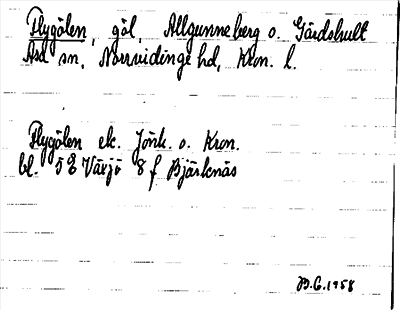 Flygölen, göl, Allgunneberg o. Gårdshult
Asa sn, Norrvidinge hd, Kron. l.
Flygölen ek. Jönk. o. Kron.
bl. 5 Ö Växjö 8 f Bjärknäs
B.G. 1958